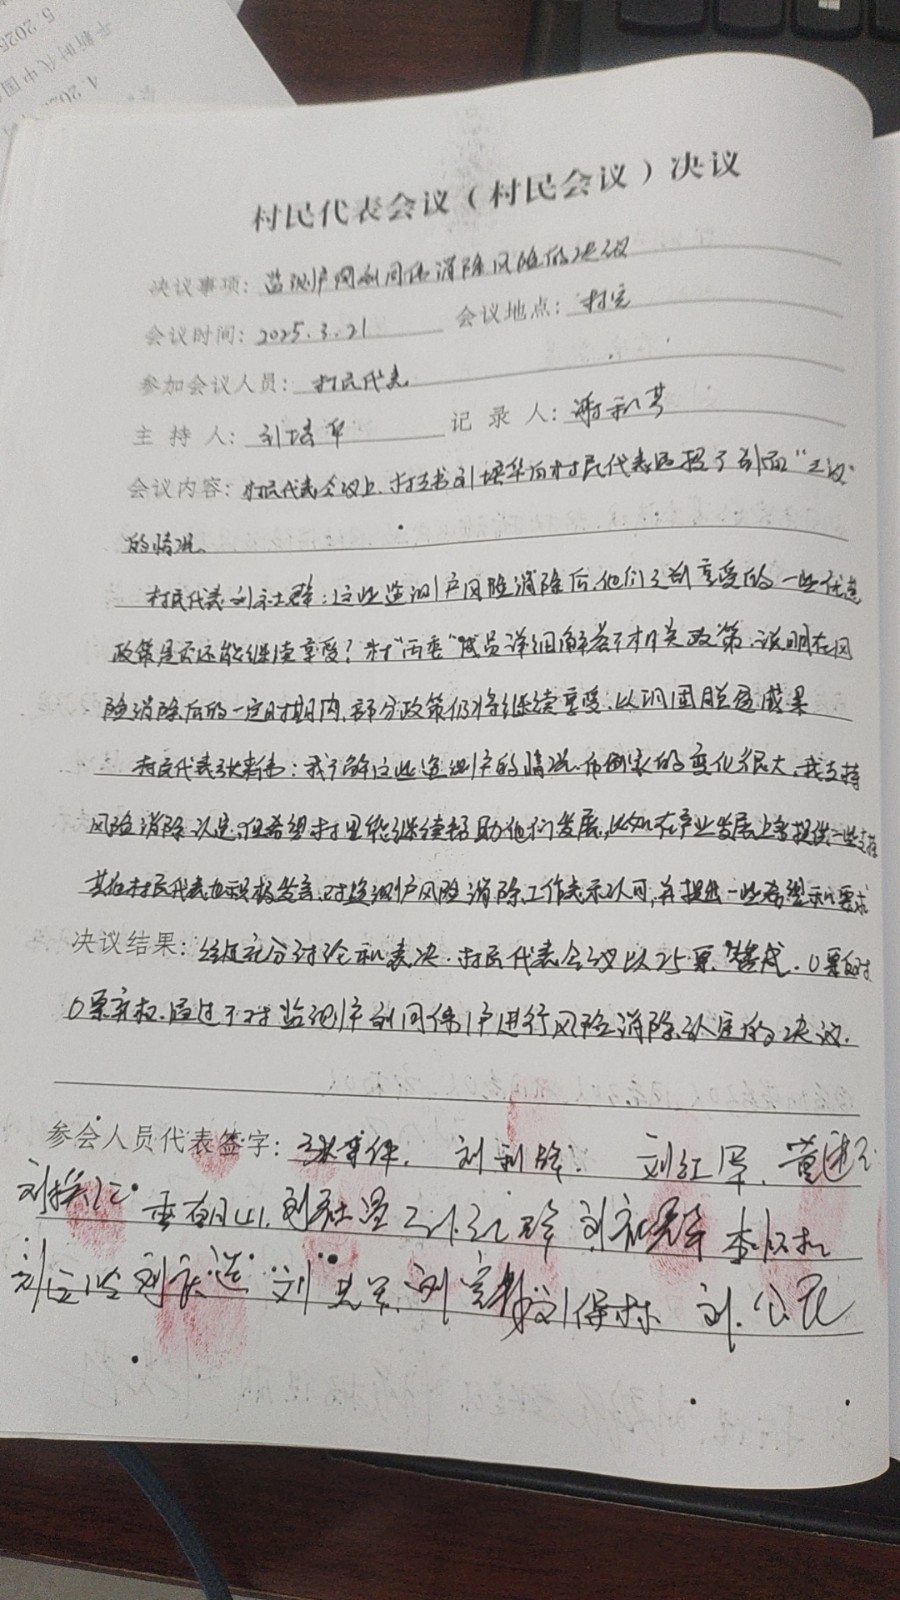 村民代表会议（村民会议）决议
决议事项：监测户刘同伟消除风险的决议
会议时间：2025.3.21 会议地点：村室
参加会议人员：村民代表
主持人：刘培华 记录人：谢
会议内容：村民代表会议上，村支书刘培华向村民代表通报了前面"二议"
的情况。
村民代表刘社群：这些监测户风险消除后，他们之前享受的一些优惠
政策是否还能继续享受？村"两委"成员详细解答了相关政策，说明在风
险消除后的一定时期内，部分政策仍将继续享受，以巩固脱贫成果
村民代表张：我了解这些监测户的情况，他们家的变化很大，我支持
风险消除认定，但希望村里能继续帮助他们发展，比如在产业发展上多提供一些支持
其他村民代表也积极发言，对监测户风险消除工作表示认可，并提出一些希望和要求
决议结果：经过充分讨论和表决，村民代表会议以25票赞成，0票反对
0票弃权，通过了对监测户刘同伟户进行风险消除认定的决议。
参会人员代表签字： 刘利 刘红军
李
刘 刘保林 刘公民